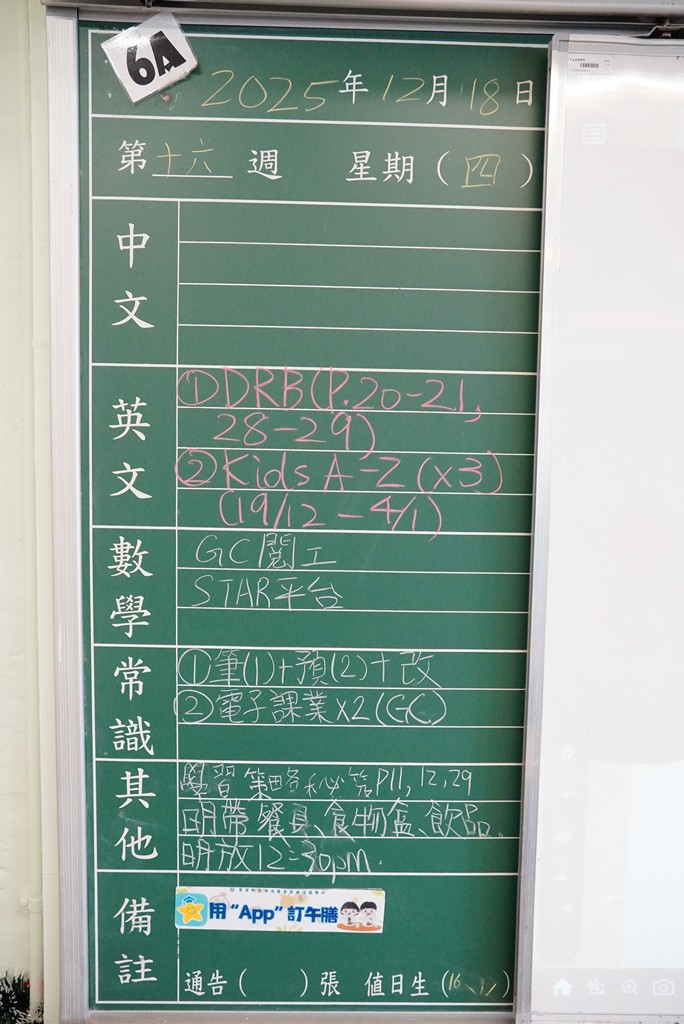 6A
2025年12月18日
第十六週 星期(四)
中文
英文
①DRB(P.20-21,
28-29)
②Kids A-Z(x3)
(19/12-4/1)
數學
GC閱工
STAR平台
常識
①筆(1)+預(2)+改
②電子課業x2(GC)
其他
學習策略秘笈P11,12,29
明帶餐具、食物盒、飲品.
明放12:30pm.
備註
用“App”訂午膳
通告( )張 值日生(16 )